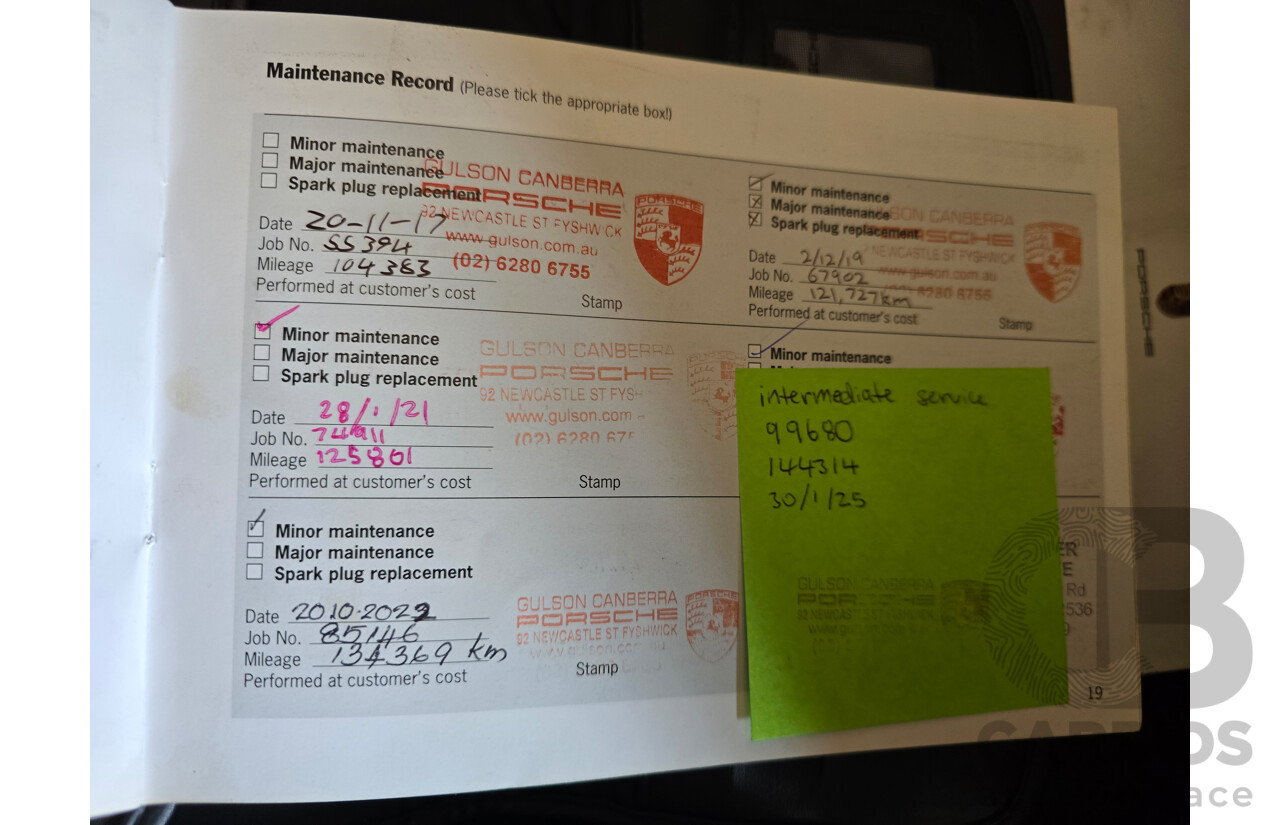 Maintenance Record (Please tick the appropriate box!)
Minor maintenance
Major maintenance
Spark plug replacement
Date 20-11-17
Job No. 55394
Mileage 104383
Performed at customer's cost
Stamp
GULSON CANBERRA
PORSCHE
92 NEWCASTLE ST FYSHWICK
www.gulson.com.au
(02) 6280 6755
PORSCHE
Minor maintenance
Major maintenance
Spark plug replacement
Date 28/1/21
Job No. 74911
Mileage 125801
Performed at customer's cost
Stamp
GULSON CANBERRA
PORSCHE
92 NEWCASTLE ST FYSH
www.gulson.com
(02) 6280 675
Minor maintenance
Major maintenance
Spark plug replacement
Date 20.10.2022
Job No. 85146
Mileage 134369 km
Performed at customer's cost
Stamp
GULSON CANBERRA
PORSCHE
92 NEWCASTLE ST FYSHWICK
Minor maintenance
Major maintenance
Spark plug replacement
Date 2/12/19
Job No. 67902
Mileage 121,727km
Performed at customer's cost
Stamp
SON CANBERRA
RSCHE
NEWCASTLE ST FYSHWICK
www.gulson.com.au
6280 6755
Minor maintenance
intermediate service
99680
144314
30/1/25
GULSON CANBERRA
PORSCHE
92 NEWCAS
ER
E
Rd
2536
9
19
PORSCHE